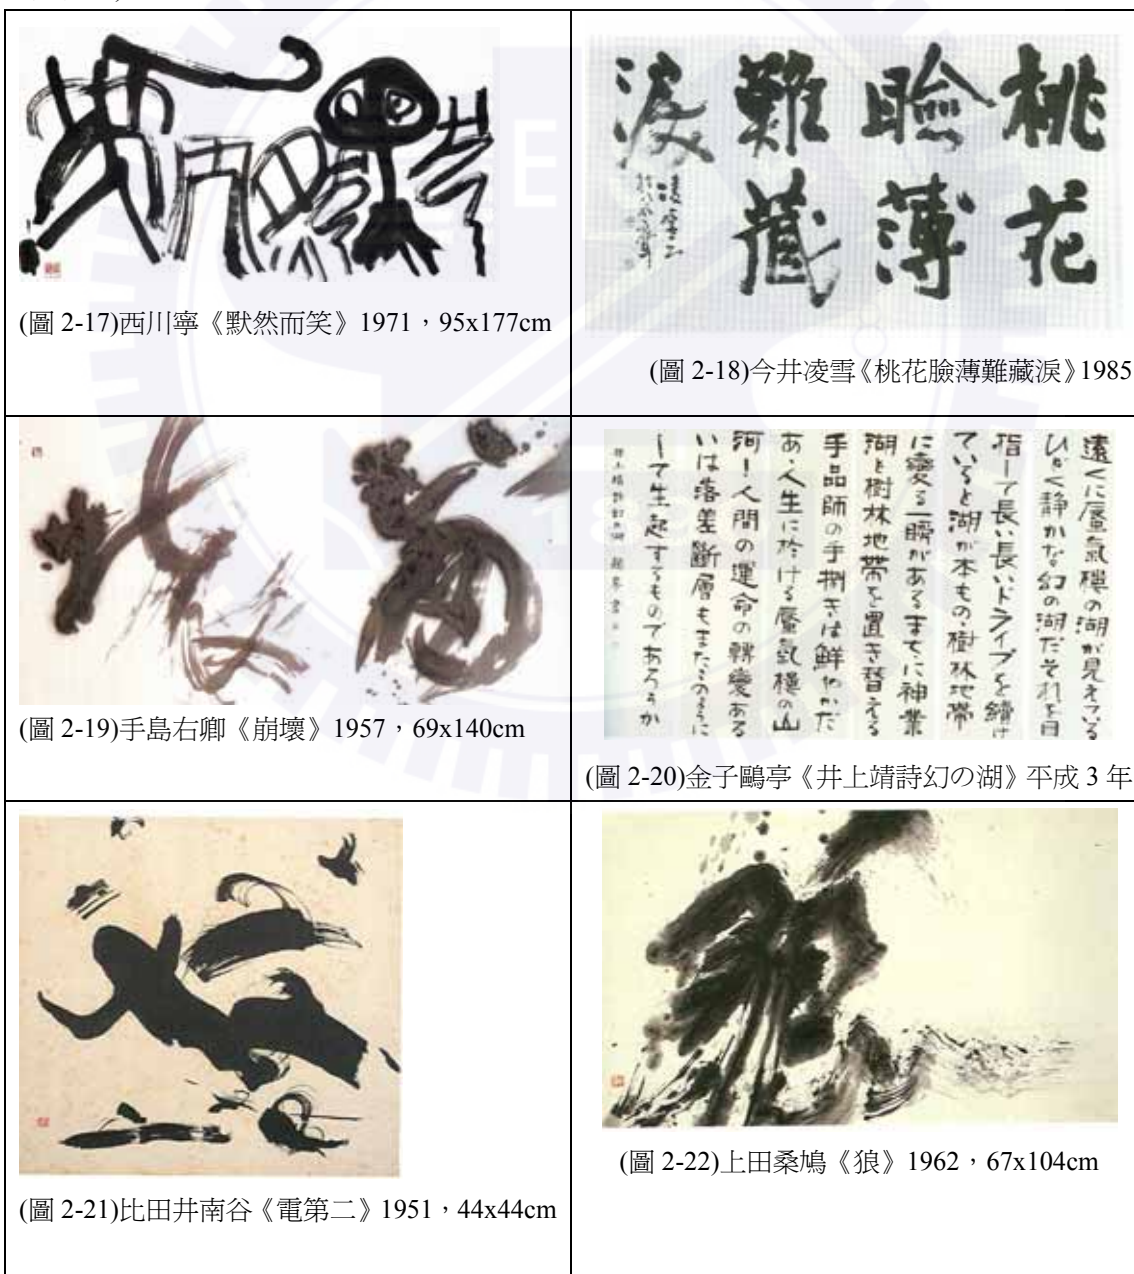 (圖 2-17)西川寧《默然而笑》1971，95x177cm
桃花
臉薄
難藏
淚
(圖 2-18)今井凌雪《桃花臉薄難藏淚》1985
(圖 2-19)手島右卿《崩壞》1957，69x140cm
遠くに蜃氣樓の湖が見えている
ひどく静かな幻の湖だそれを目
指して長い長いドライブを續け
ていると湖が本もの樹林地帶
に変る一瞬があるまさに神業
湖と樹林地帶を置き替える
手品師の手捌きは鮮やかだ
あゝ人生に於ける蜃氣樓の山
河！人間の運命の轉變ある
いは落差斷層もまたこのように
して生起するものであろうか
(圖 2-20)金子鷗亭《井上靖詩幻の湖》平成 3 年
(圖 2-21)比田井南谷《電第二》1951，44x44cm
(圖 2-22)上田桑鳩《狼》1962，67x104cm